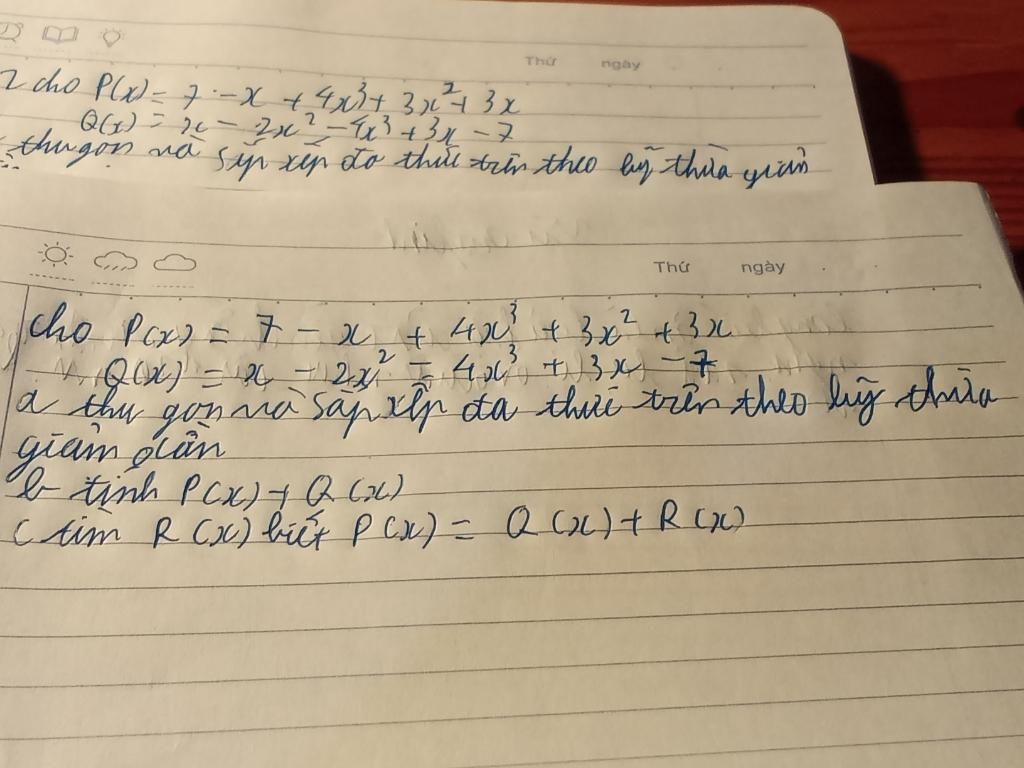 Thứ ngày
2 cho P(x) = 7 - x + 4x³ + 3x² + 3x
Q(x) = x - 2x² - 4x³ + 3x - 7
thu gọn và sắp xếp đa thức trên theo luỹ thừa giảm
Thứ ngày
cho P(x) = 7 - x + 4x³ + 3x² + 3x
Q(x) = x - 2x² - 4x³ + 3x - 7
a thu gọn và sắp xếp đa thức trên theo luỹ thừa
giảm dần
b tính P(x) + Q(x)
c tìm R(x) biết P(x) = Q(x) + R(x)